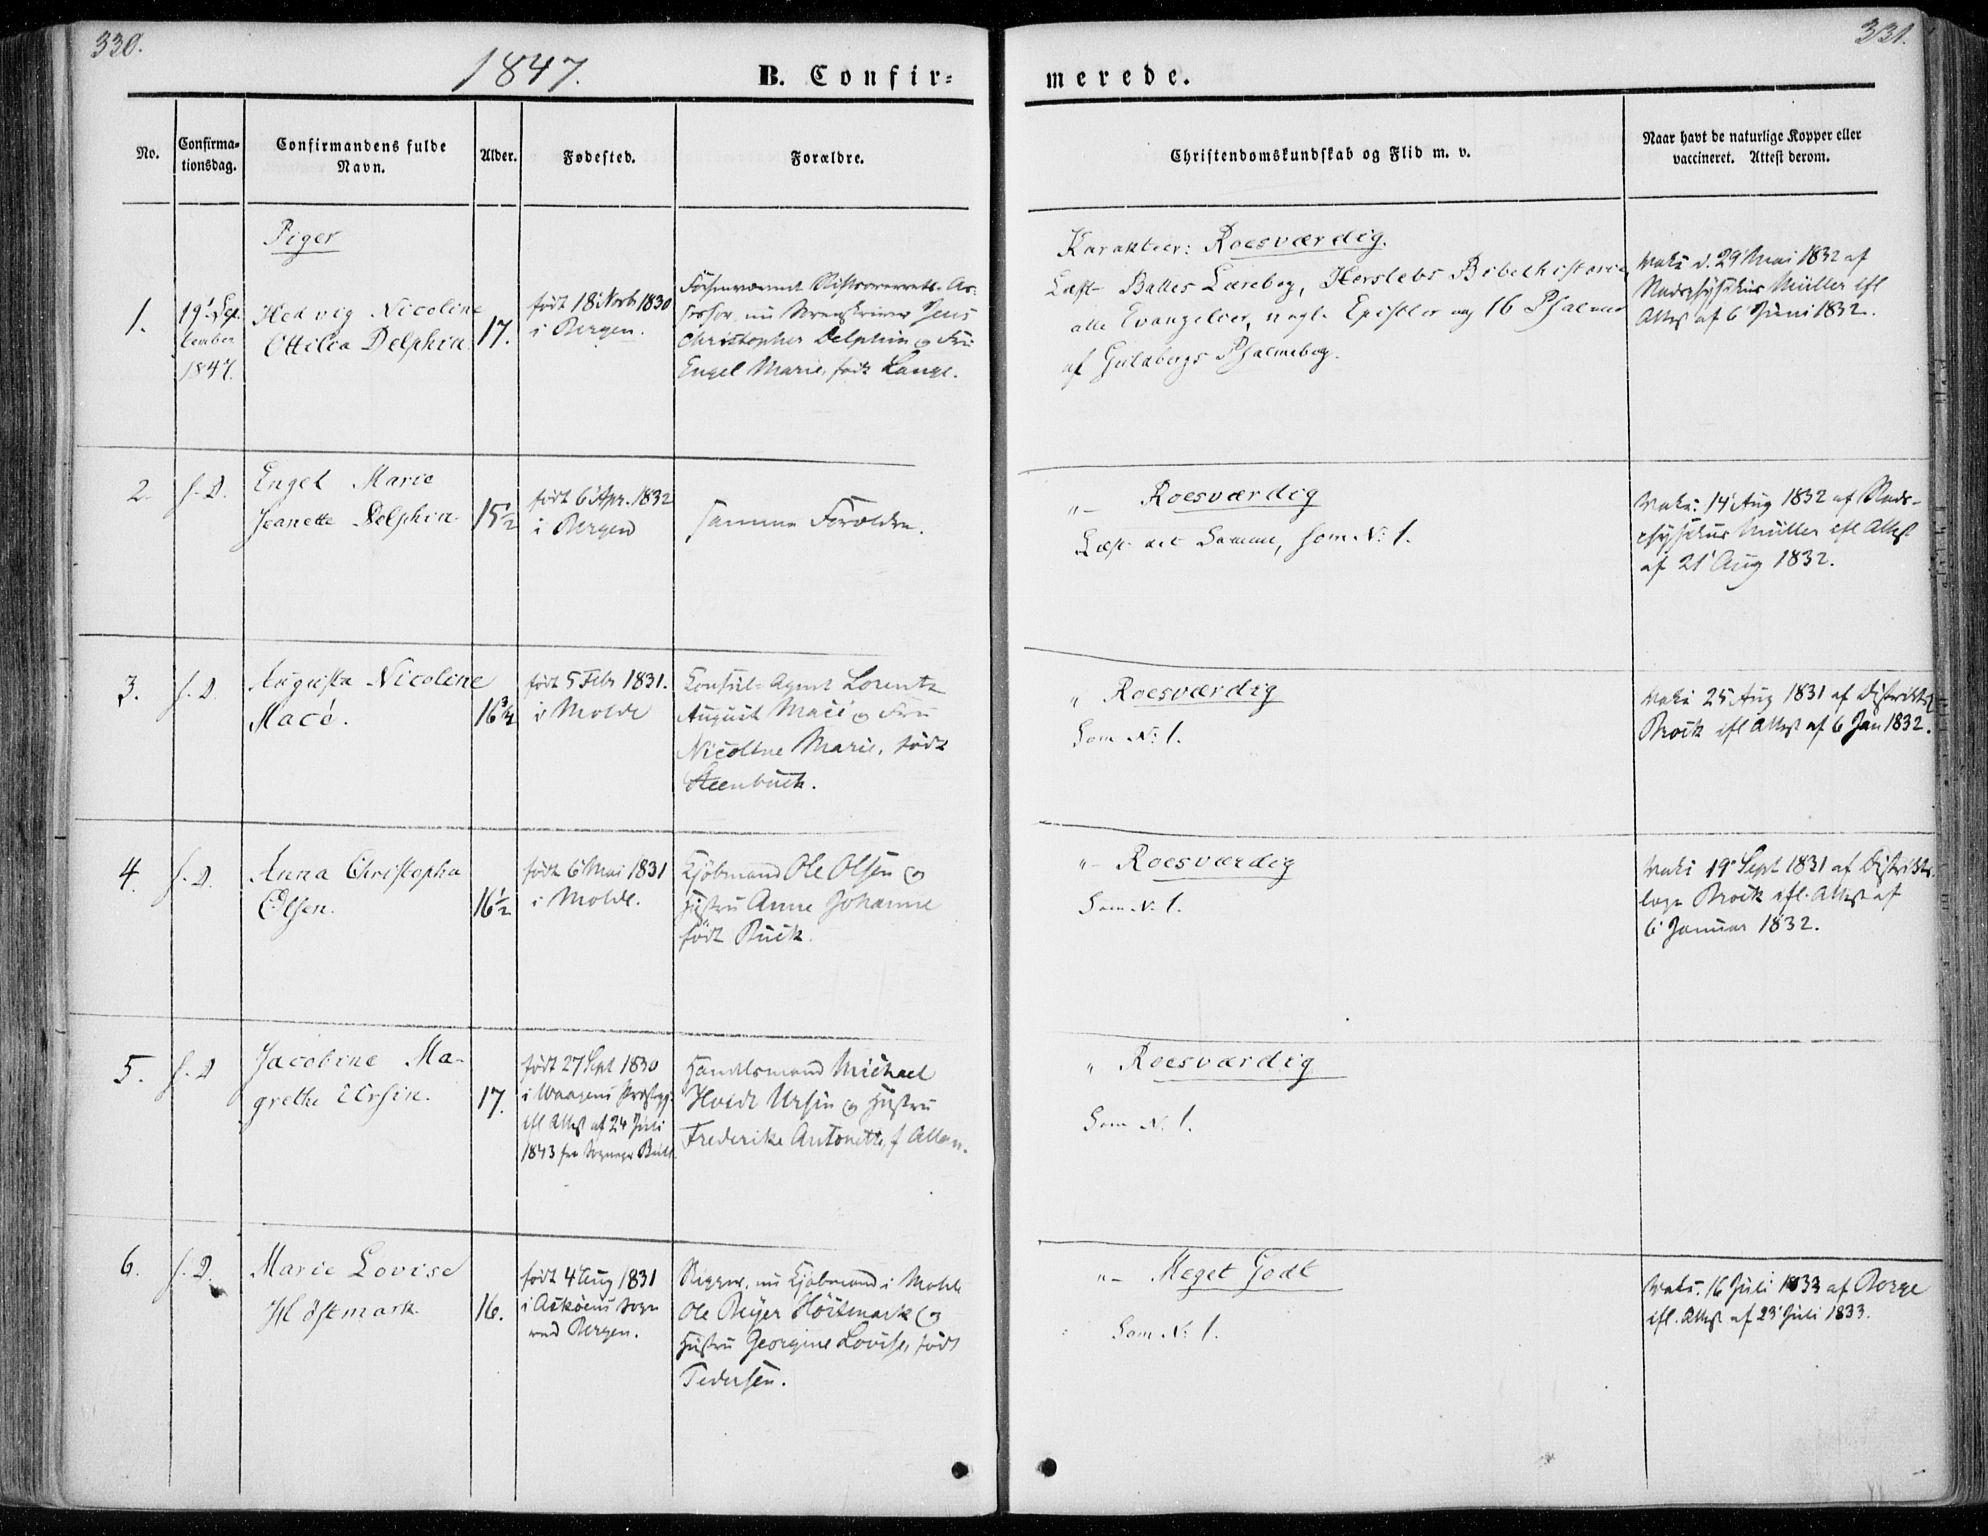 330.
1847.
B. Confir=
No.
Confirma=
tionsdag.
Confirmandens fulde
Navn.
Alder.
Fødested.
Forældre.
Piger
1.
19' Sep-
tember
1847.
Hedvig Nicoline
Ottilia Delphin
17.
født 18 Novb 1830
i Bergen.
As-
sessor, nu Sorenskriver Jens
Christopher Delphin og Fru
Engel Marie, født Lange.
2.
s. D.
Engel Marie
Jeanette Delphin.
15½
født 6' Apr. 1832
i Bergen
samme Forældre.
3.
s. D.
Augusta Nicoline
Macé.
16¾
født 5 Febr 1831.
i Molde
Consul-Agent Lorentz
August Macé og Fru
Nicoline Marie, født
Steenbuch.
4.
s. D.
Anna Christopha
Olsen.
16½
født 6' Mai 1831
i Molde.
Kjøbmand Ole Olsen og
Hustru Anne Johanne
født Buck.
5.
s. D
Jacobine Ma-
grethe Ursin.
17.
født 27 Sept 1830
i Vaagens Præstegj.
efl Attest af 24 Juli
1843 fra Sognepr
Handelsmand Michael
Hvidt Ursin og Hustru
Frederike Antonette, f
6.
s. D.
Marie Lovise
Höstmark
16.
født 4 Aug 1831
i Askøens Sogn
ved Bergen.
nu Kjøbmand i Molde
Ole Beyer Höstmark og
Hustru Georgine Lovise, født
Pedersen.
331.
merede.
Christendomskundskab og Flid m. v.
Naar havt de naturlige Kopper eller
vaccineret. Attest derom.
Karakteer: Roesværdig.
Læst Balles Lærebog, Herslebs Bibelhistorie
alle Evangelier, nogle Epistler og 16 Psalmer
af Guldbergs Psalmebog.
Vakc d. 29' Mai 1832 af
Stadsphysikus Müller efl
Attest af 6' Juni 1832.
"– Roesværdig
Læst det Samme, som N: 1.
Vakc: 14' Aug 1832 af Stads-
physikus Müller efl Attest
af 21' Aug 1832.
" Roesværdig
Som N: 1.
Vakc 25' Aug 1831 af Distriktsl
Brock efl Attest af 6 Jan 1832.
"– Roesværdig
Som N: 1.
Vakc 19' Sept 1831 af Distrikts-
læge Brock efl. Attest af
6' Januar 1832.
" Roesværdig
Som N: 1.
"– Meget Godt
Som N: 1.
Vakc. 16 Juli 1833 af Borge
efl. Attest af 23' Juli 1833.